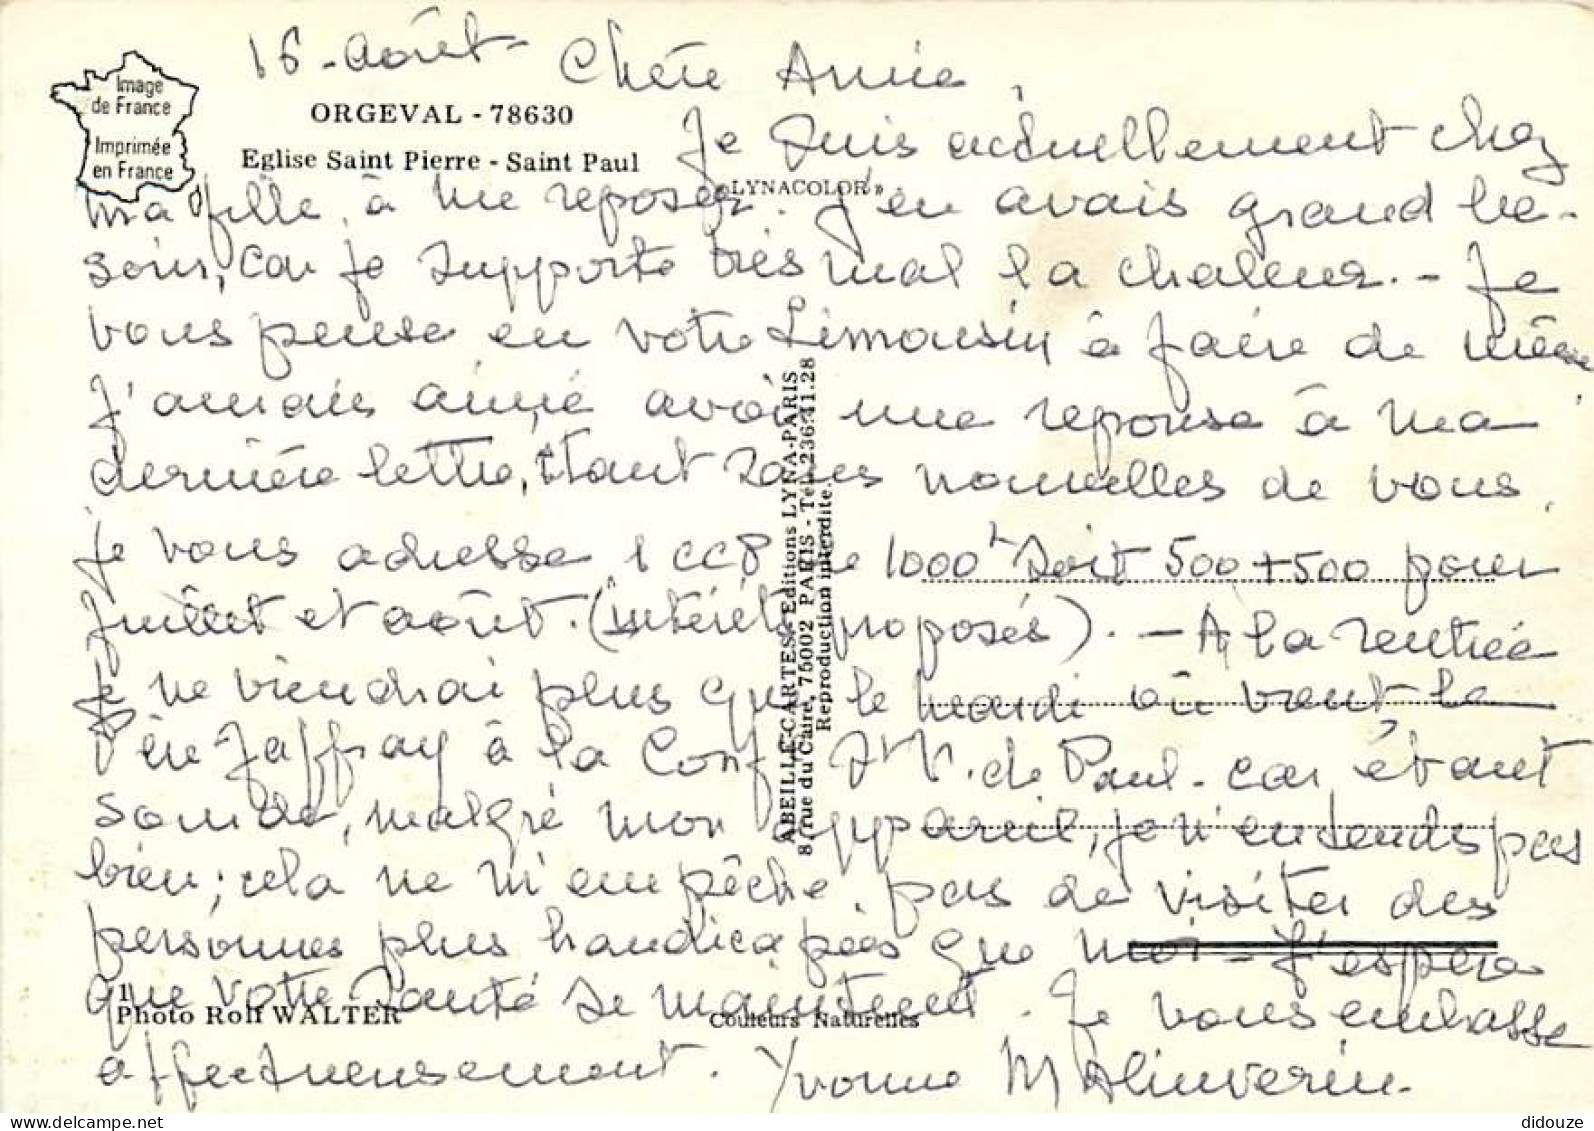 16 - août - Chère Annie,
Image
de France
Imprimée
en France
ORGEVAL - 78630
Eglise Saint Pierre - Saint Paul
«LYNACOLOR»
Je suis actuellement chez
ma fille, à me reposer. J'en avais grand be-
soin, car je supporte très mal la chaleur. - Je
vous pense en votre Limousin à faire de même
J'aurais aimé avoir une reponse à ma
dernière lettre, étant sans nouvelles de vous.
Je vous adresse 1 CCP de 1000 F soit 500 + 500 pour
Juillet et août. (intérêts proposés). - A la rentrée
je ne viendrai plus que le mardi où vient le
Père Jaffray à la Conf St V. de Paul - car, étant
sourde, malgré mon appareil, je n'entends pas
bien; cela ne m'empêche pas de visiter des
personnes plus handicapées que moi - J'espère
que votre santé se maintient. Je vous embrasse
affectueusement. Yvonne Malinverin.
ABEILLE-CARTES - Editions LYNA-PARIS
8, rue du Caire, 75002 PARIS - Tél. 236.41.28
Reproduction interdite.
1
Photo Rolf WALTER
Couleurs Naturelles
delcampe.net
didouze